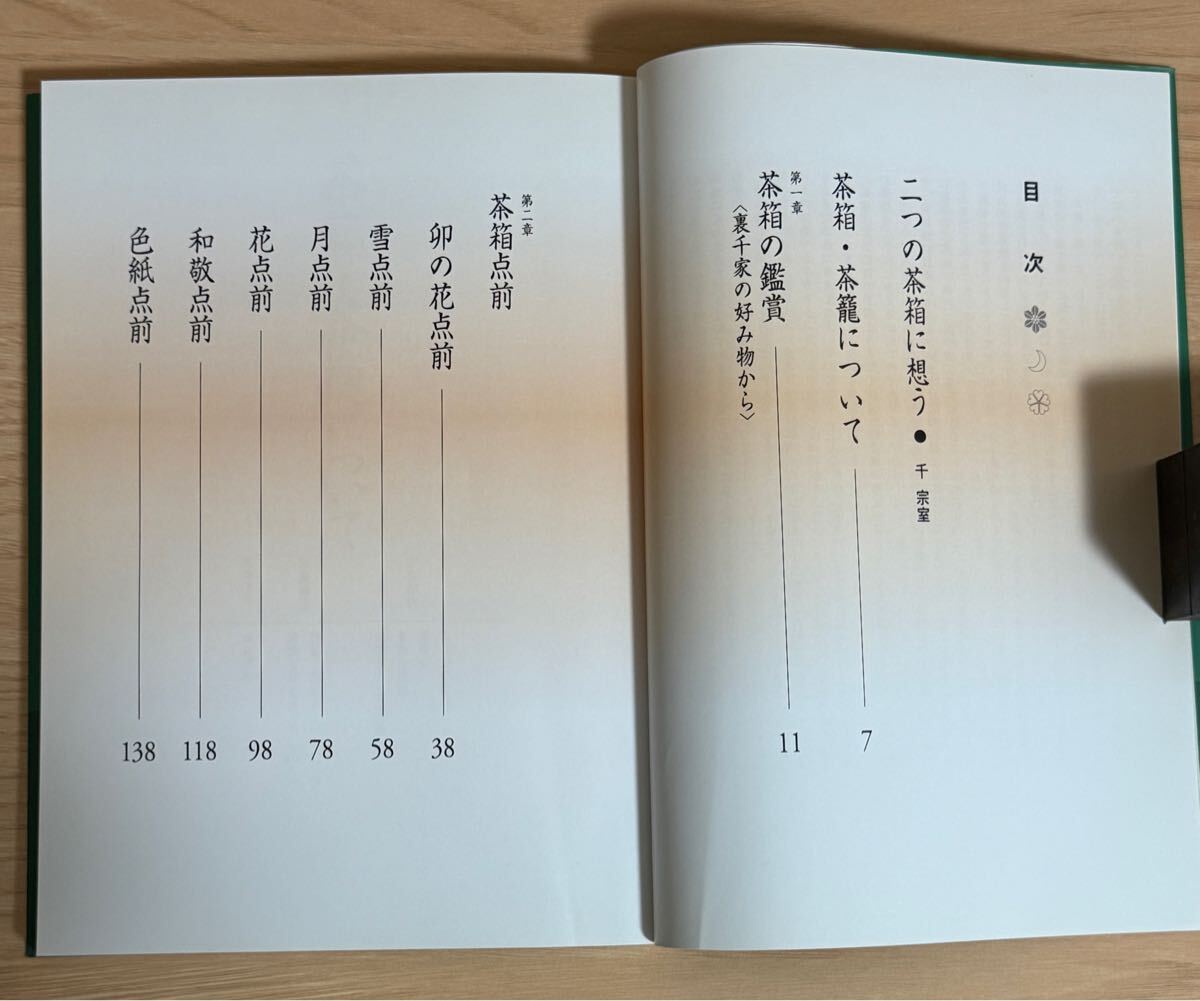 目次
二つの茶箱に想う●千 宗室
茶箱・茶籠について 7
第一章
茶箱の鑑賞 11
〈裏千家の好み物から〉
第二章
茶箱点前
卯の花点前 38
雪点前 58
月点前 78
花点前 98
和敬点前 118
色紙点前 138